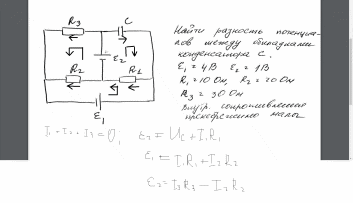 R₃ C
ε₂
R₂ R₁
ε₁
Найти разность потенциа-
лов между обкладками
конденсатора C.
ε₁ = 4В ε₂ = 1В
R₁ = 10 Ом, R₂ = 20 Ом
R₃ = 30 Ом
Внутр. сопротивление
пренебрежимо мало
I₁ + I₂ + I₃ = 0; ε₂ = U_C + I₁R₁
ε₁ = I₁R₁ + I₂R₂
ε₂ = I₃R₃ − I₂R₂